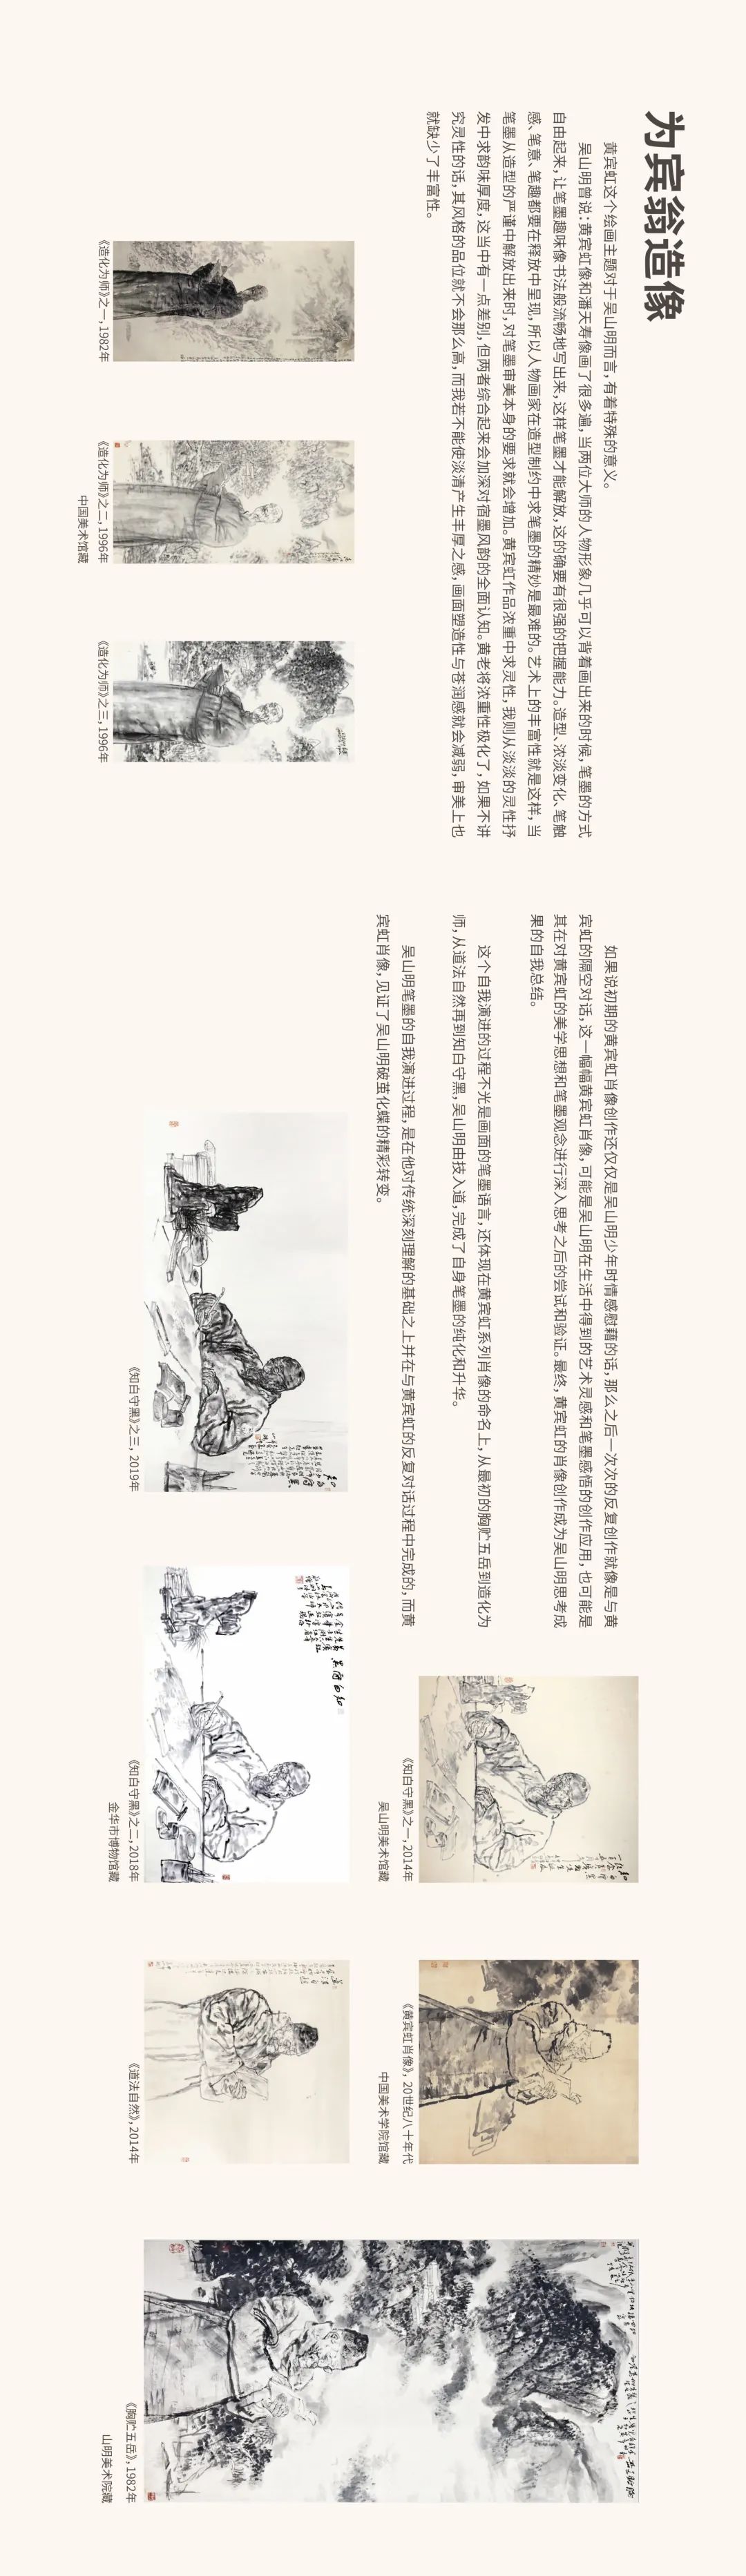 为宾翁造像
黄宾虹这个绘画主题对于吴山明而言，有着特殊的意义。
吴山明曾说：黄宾虹像和潘天寿像画了很多遍，当两位大师的人物形象几乎可以背着画出来的时候，笔墨的方式
自由起来，让笔墨趣味像书法般流畅地写出来，这样笔墨才能解放，这的确要有很强的把握能力。造型、浓淡变化、笔触
感、笔意、笔趣都要在释放中呈现，所以人物画家在造型制约中求笔墨的精妙是最难的。艺术上的丰富性就是这样，当
笔墨从造型的严谨中解放出来时，对笔墨审美本身的要求就会增加。黄宾虹作品浓重中求灵性，我则从淡淡的灵性抒
发中求韵味厚度，这当中有一点差别，但两者综合起来会加深对宿墨风韵的全面认知。黄老将浓重性极化了，如果不讲
究灵性的话，其风格的品位就不会那么高，而我若不能使淡清产生丰厚之感，画面塑造性与苍润感就会减弱，审美上也
就缺少了丰富性。
《造化为师》之一，1982年
《造化为师》之二，1996年
中国美术馆藏
《造化为师》之三，1996年
如果说初期的黄宾虹肖像创作还仅仅是吴山明少年时情感慰藉的话，那么之后一次次的反复创作就像是与黄
宾虹的隔空对话，这一幅幅黄宾虹肖像，可能是吴山明在生活中得到的艺术灵感和笔墨感悟的创作应用，也可能是
其在对黄宾虹的美学思想和笔墨观念进行深入思考之后的尝试和验证。最终，黄宾虹的肖像创作成为吴山明思考成
果的自我总结。
这个自我演进的过程不光是画面的笔墨语言，还体现在黄宾虹系列肖像的命名上，从最初的胸贮五岳到造化为
师，从道法自然再到知白守黑，吴山明由技入道，完成了自身笔墨的纯化和升华。
吴山明笔墨的自我演进过程，是在他对传统深刻理解的基础之上并在与黄宾虹的反复对话过程中完成的，而黄
宾虹肖像，见证了吴山明破茧化蝶的精彩转变。
《知白守黑》之三，2019年
《知白守黑》之二，2018年
金华市博物馆藏
《知白守黑》之一，2014年
吴山明美术馆藏
《道法自然》，2014年
《黄宾虹肖像》，20世纪八十年代
中国美术学院馆藏
《胸贮五岳》，1982年
山明美术院藏